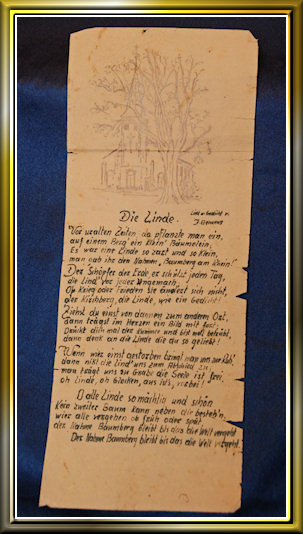 Die Linde.
Lied u. Gedicht v.
J.
Vor uralten Zeiten da pflanzte man ein,
auf einem Berg ein klein' Bäumelein,
Es war eine Linde so zart und so klein,
man gab ihr den Nahme, Baumberg am Rhein!
Der Schöpfer der Erde er schützt jeden Tag,
die Lind' vor jedes Ungemach,
Ob Krieg oder Frieden sie ändert sich nicht,
der Kirchberg, die Linde, wie ein Gedicht!
Ziehst du einst von dannen zum anderen Ort,
dann trägst im Herzen ein Bild mit fort,
Drückt dich mal der Kummer und bist mal betrübt,
dann denk an die Linde die du so geliebt!
Wenn wir einst gestorben bringt man uns zur Ruh',
dann nikt die Lind' uns zum Abschied zu,
man trägt uns zu Grabe die Seele ist frei,
oh Linde, oh Linde, aus ist's, vorbei!
O alte Linde so mächtig und schön
Kein zweiter Baum kann neben dir besteh'n,
wir alle vergehen ob früh oder spät
der Nahme Baumberg bleibt bis das die Welt vergeht
Der Nahme Baumberg bleibt bis das die Welt vergeht.